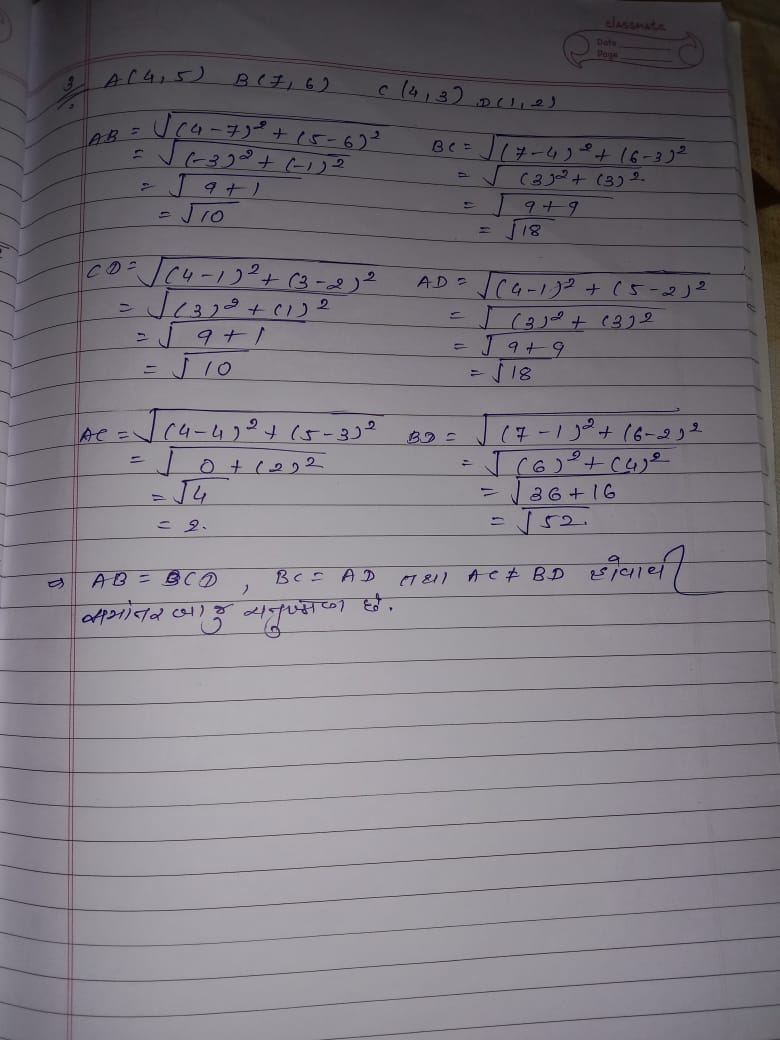 classmate
Date
Page
3 A(4,5) B(7,6) C(4,3) D(1,2)
AB = √(4-7)² + (5-6)²
= √(-3)² + (-1)²
= √9+1
= √10
BC = √(7-4)² + (6-3)²
= √(3)² + (3)²
= √9+9
= √18
CD = √(4-1)² + (3-2)²
= √(3)² + (1)²
= √9+1
= √10
AD = √(4-1)² + (5-2)²
= √(3)² + (3)²
= √9+9
= √18
AC = √(4-4)² + (5-3)²
= √0 + (2)²
= √4
= 2.
BD = √(7-1)² + (6-2)²
= √(6)² + (4)²
= √36+16
= √52.
⇒ AB = CD , BC = AD તથા AC ≠ BD હોવાથી
સમાંતર બાજુ ચતુષ્કોણ છે.